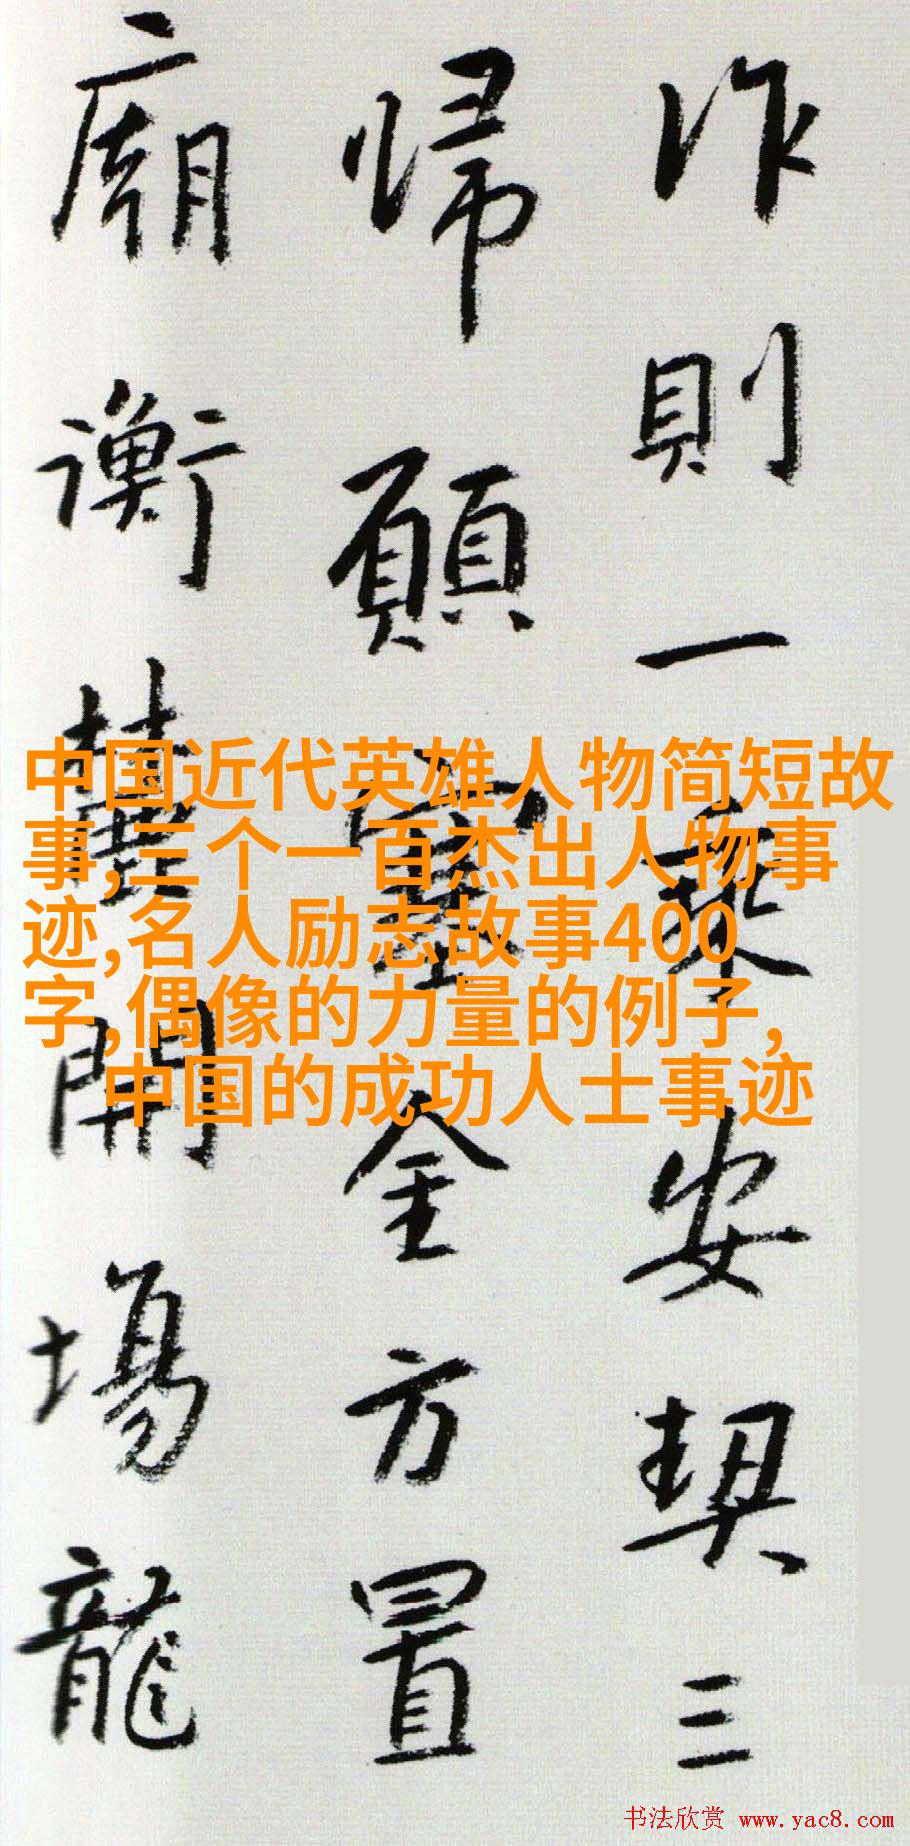 作則一乘安契三
歸願全方置
廟衡開場龍
中国近代英雄人物简短故
事,三个一百杰出人物事
迹,名人励志故事400
字,偶像的力量的例子,
中国的成功人士事迹
书法欣赏 www.yac8.com